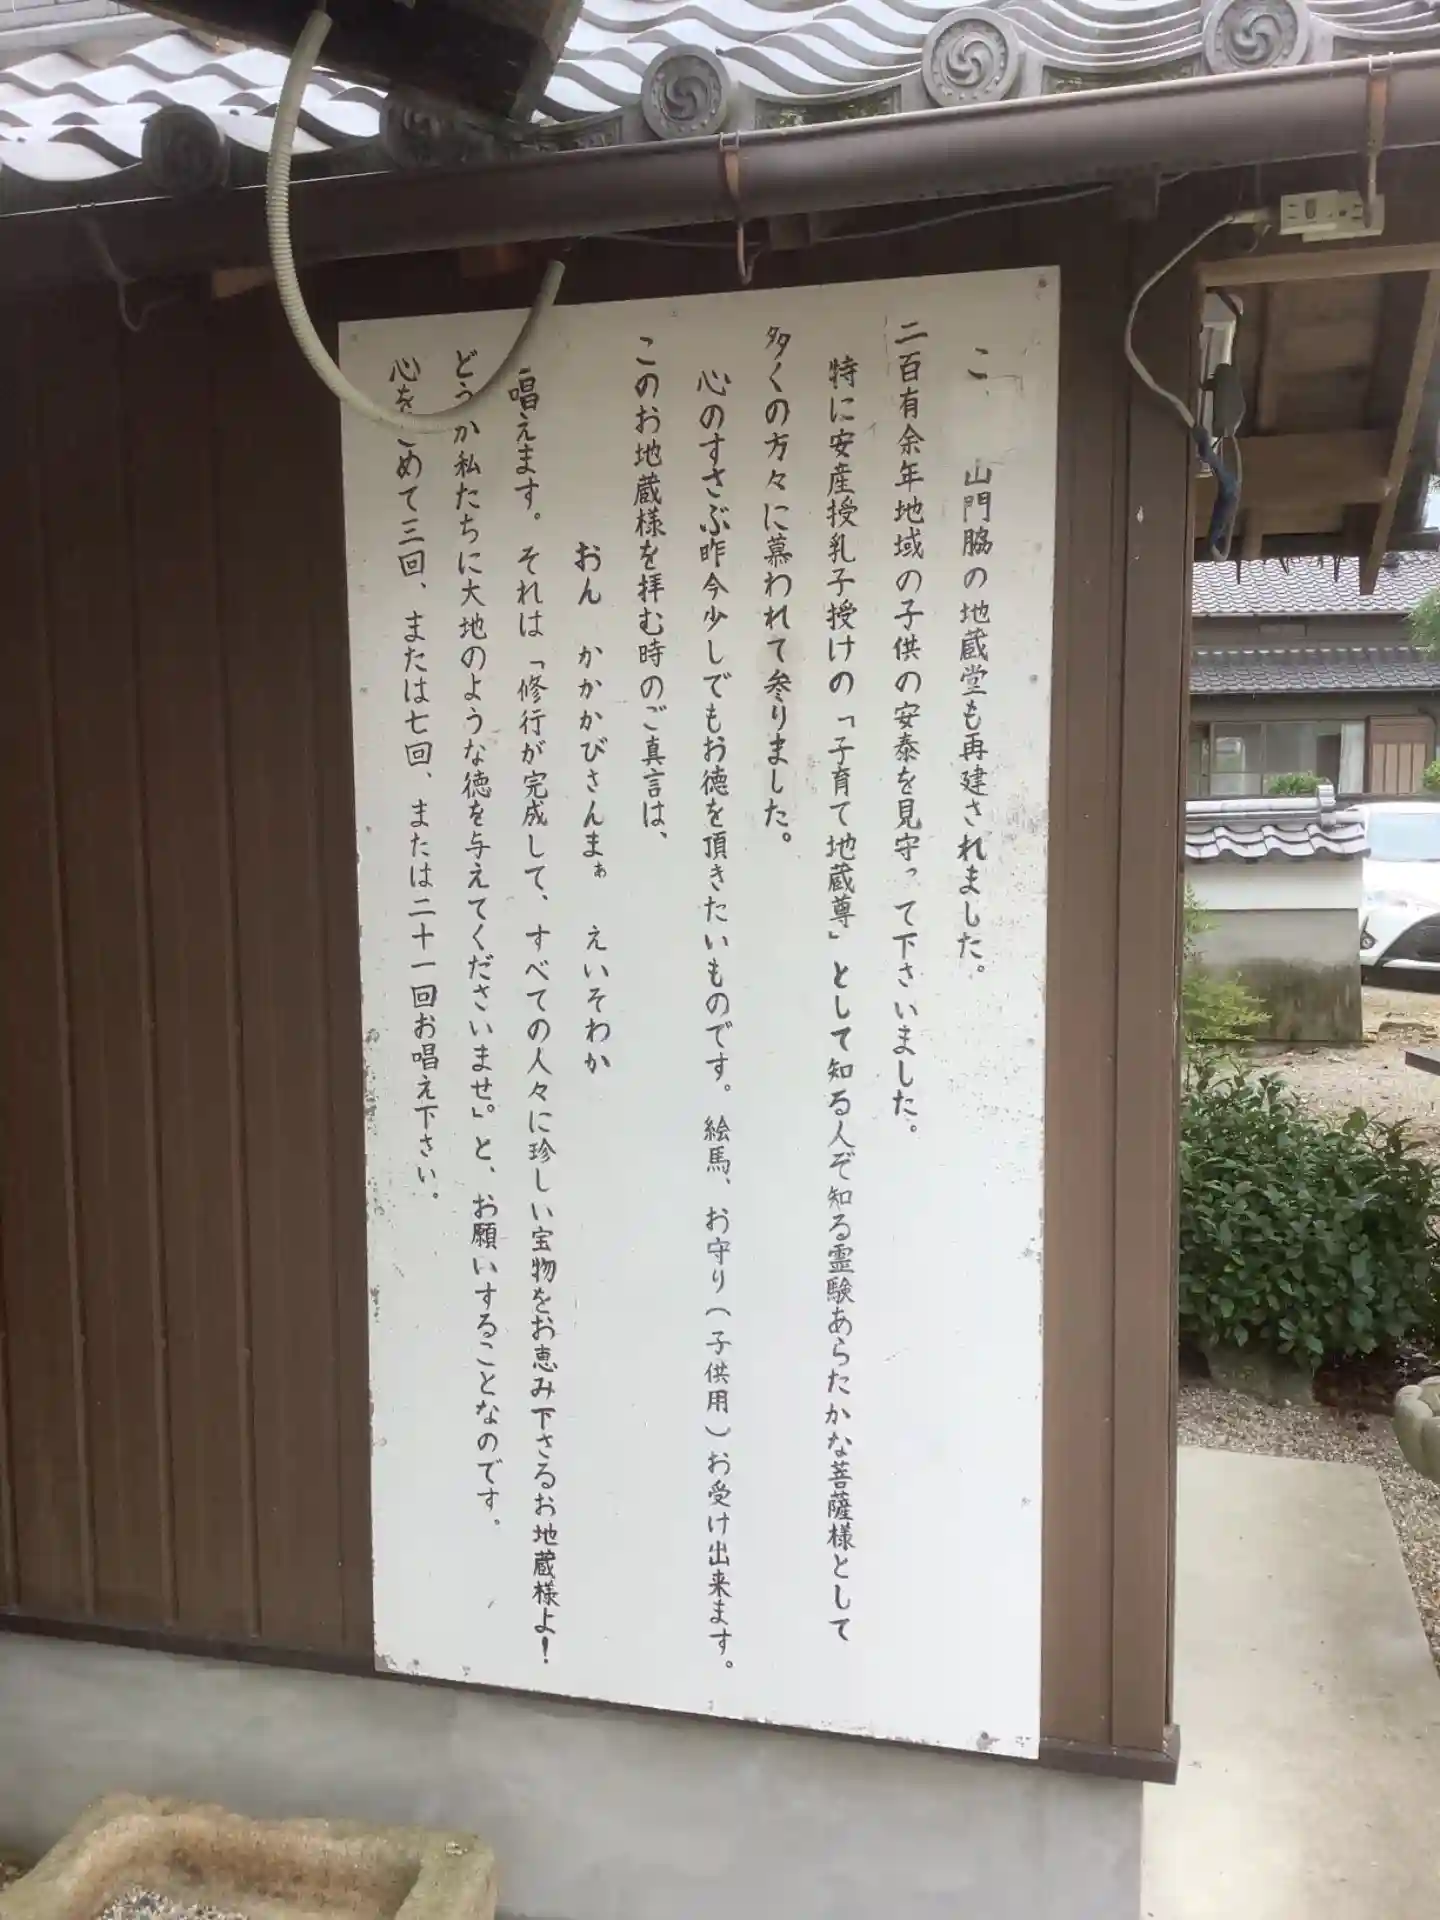 こ 山門脇の地蔵堂も再建されました。
二百有余年地域の子供の安泰を見守って下さいました。
特に安産授乳子授けの「子育て地蔵尊」として知る人ぞ知る霊験あらたかな菩薩様として
多くの方々に慕われて参りました。
心のすさぶ昨今少しでもお徳を頂きたいものです。絵馬、お守り(子供用)お受け出来ます。
このお地蔵様を拝む時のご真言は、
おん かかかびさんまぁ えいそわか
唱えます。それは「修行が完成して、すべての人々に珍しい宝物をお恵み下さるお地蔵様よ!
どうか私たちに大地のような徳を与えてくださいませ。」と、お願いすることなのです。
心をこめて三回、または七回、または二十一回お唱え下さい。